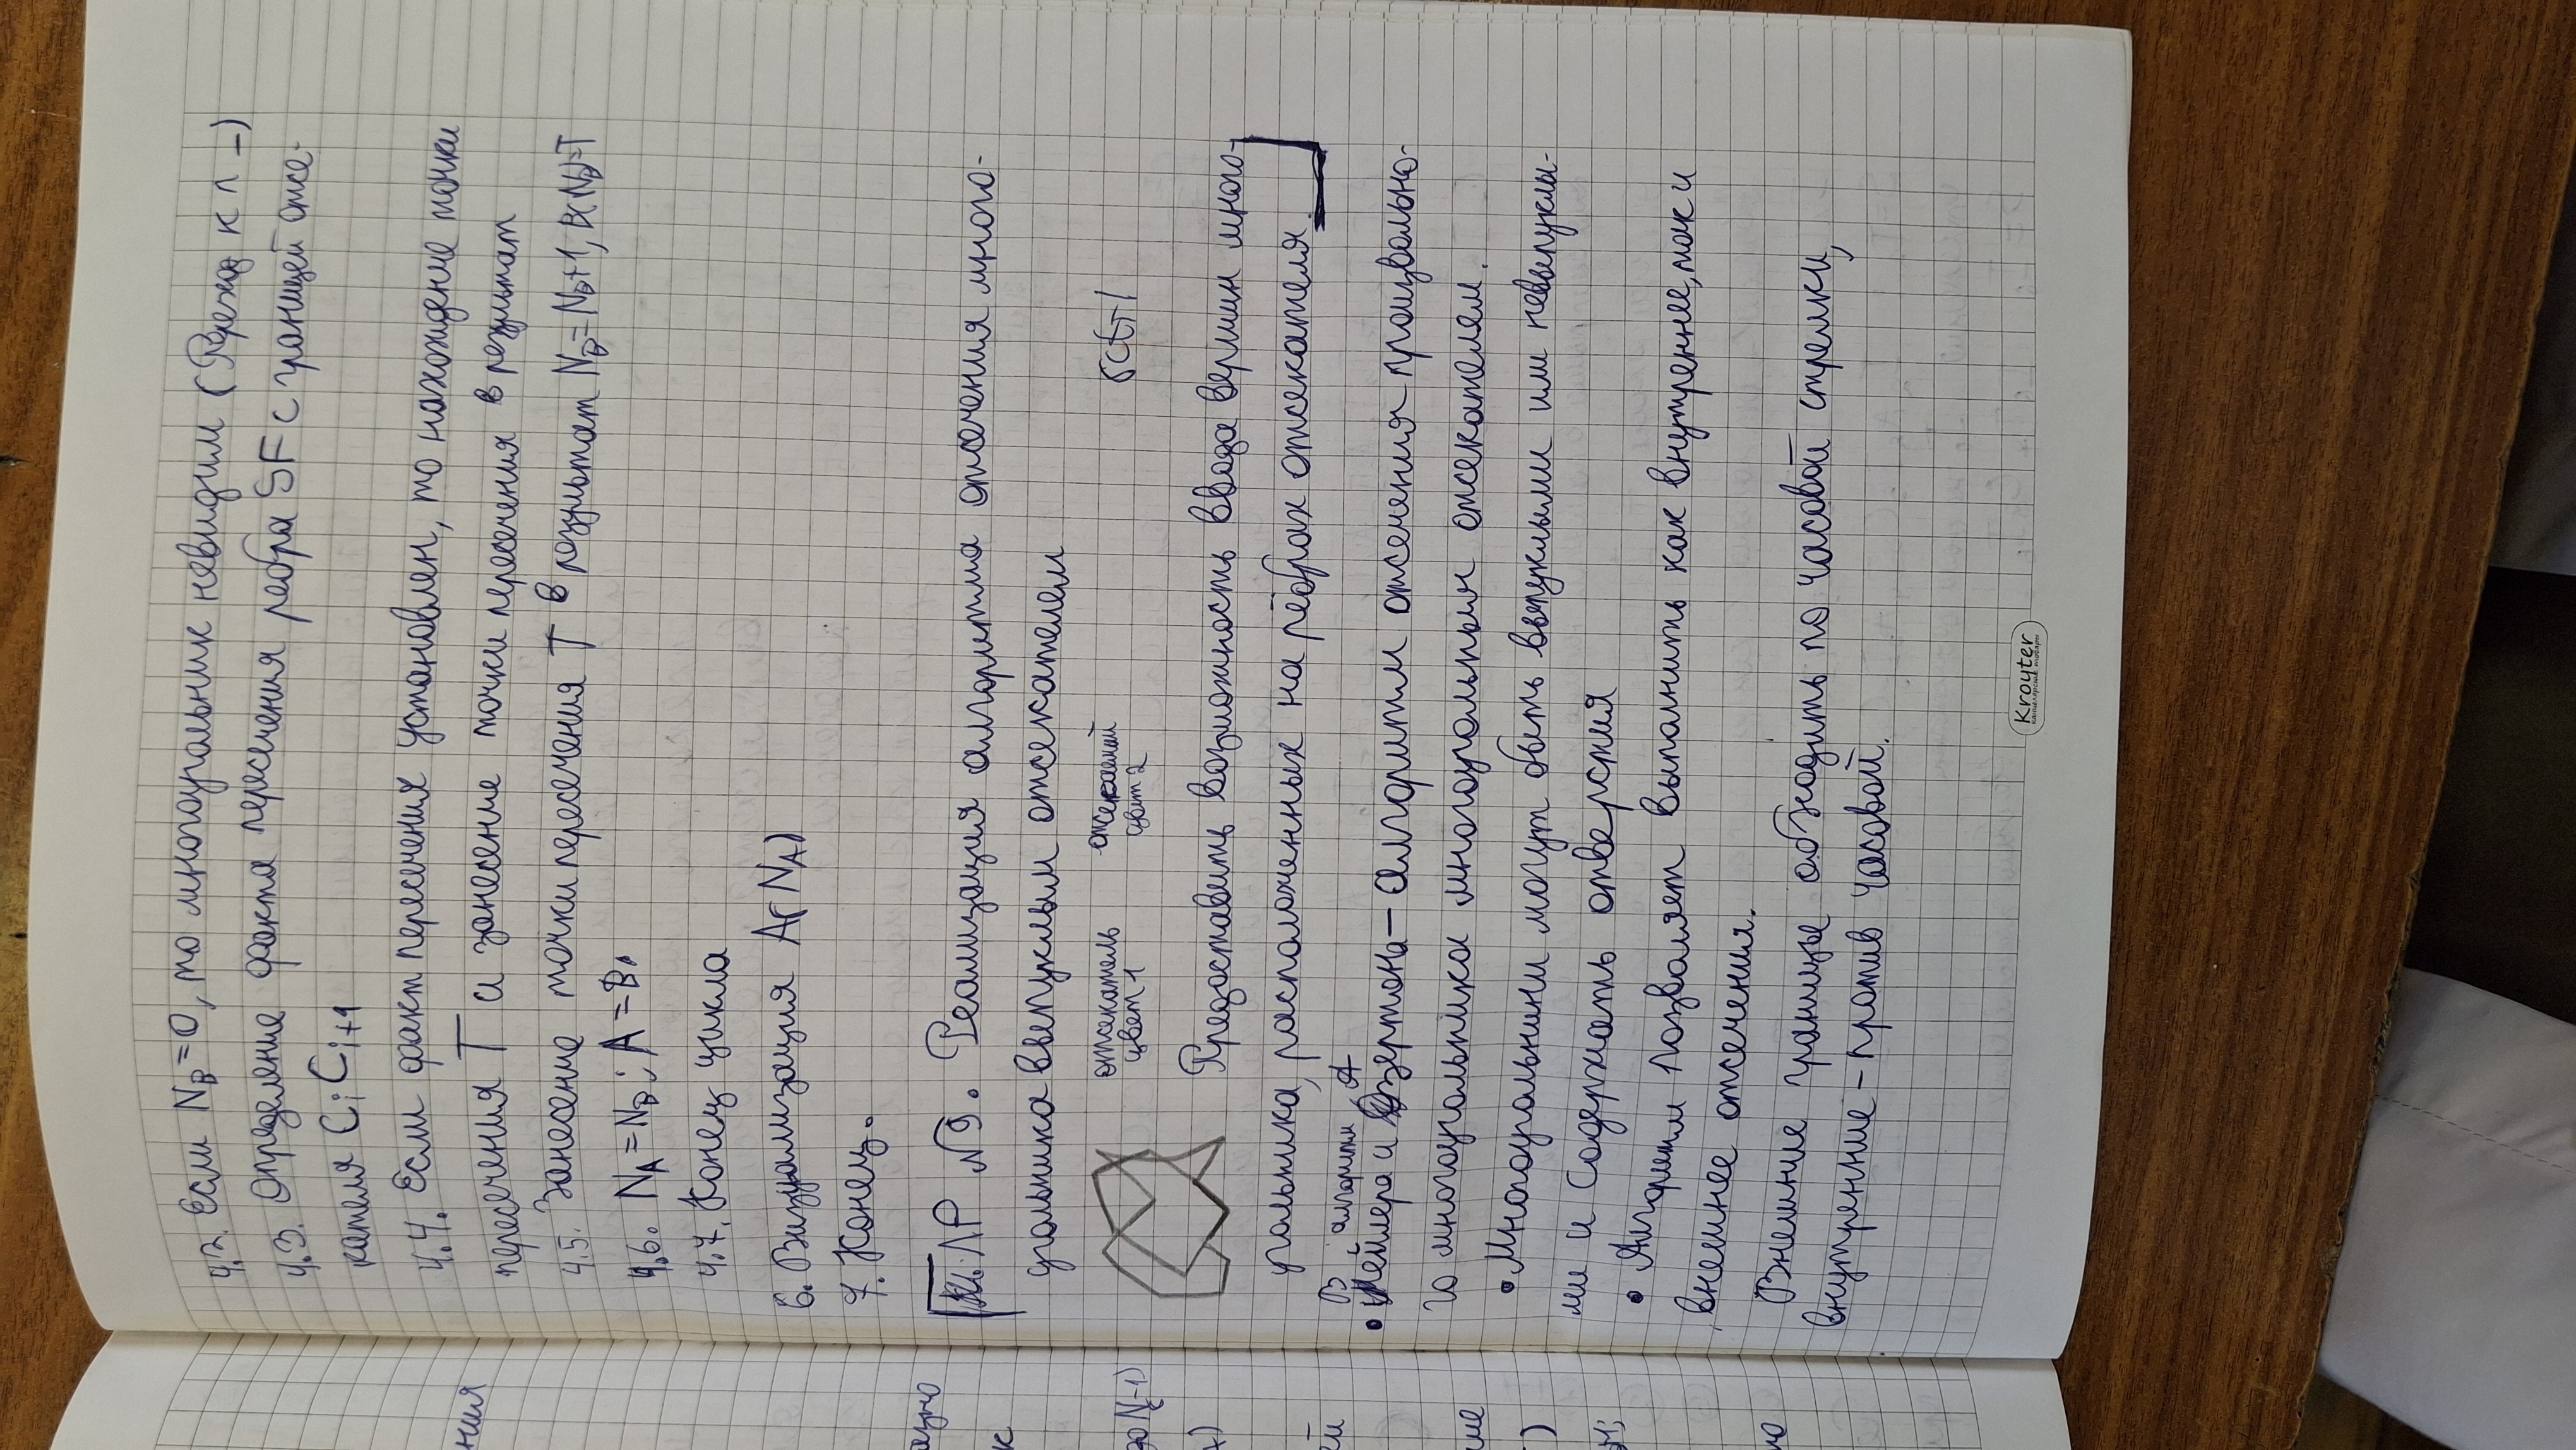 ния
азно
к
до Nc-1)
ей
ние
4.2. Если N_B=0, то многоугольник невидим (Переход к п –)
4.3. Определение факта пересечения ребра SF с границей отсе-
кателя C_i C_{i+1}
4.4. Если факт пересечения установлен, то нахождение точки
пересечения T и занесение точки пересечения в результат
4.5. Занесение точки пересечения T в результат N_B=N_B+1, B(N_B)=T
4.6. N_A=N_B; A=B.
4.7. Конец цикла
6. Визуализация A(N_A)
7. Конец.
ЛР №9. Реализация алгоритма отсечения много-
угольника выпуклым отсекателем
отсекатель отсекаемый
цвет 1 цвет 2
Предоставить возможность ввода вершин много-
угольника, расположенных на рёбрах отсекателя.
В алгоритм А
• Вейлера и Азертона – алгоритм отсечения произвольно-
го многоугольника многоугольным отсекателем.
• Многоугольники могут быть выпуклыми или невыпуклы-
ми и содержать отверстия
• Алгоритм позволяет выполнить как внутреннее, так и
внешнее отсечения.
Внешние границы обходить по часовой стрелки,
внутренние – против часовой.
Krouter
канцелярские товары